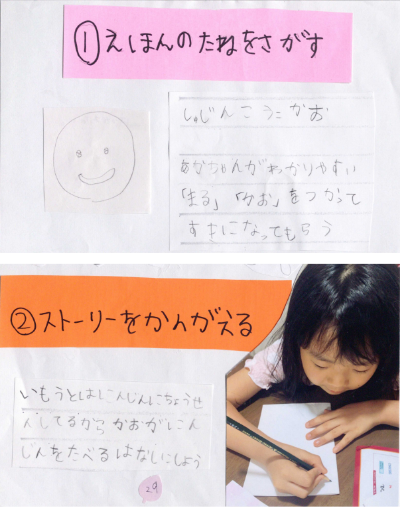 ①えほんのたねをさがす
しゅじんこうこかお
あかちゃんがわかりやすい
「まる」「かお」をつかって
すきになってもらう
②ストーリーをかんがえる
いもうとはにんじんにちょうせ
んしてるから かおがにん
じんをたべるはなしにしよう
29